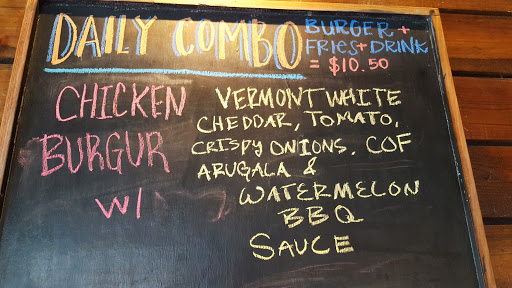 DAILY COMBO
BURGER +
FRIES + DRINK
= $10.50
CHICKEN
BURGUR
W/
VERMONT WHITE
CHEDDAR, TOMATO,
CRISPY ONIONS, COF
ARUGALA &
WATERMELON
BBQ
SAUCE